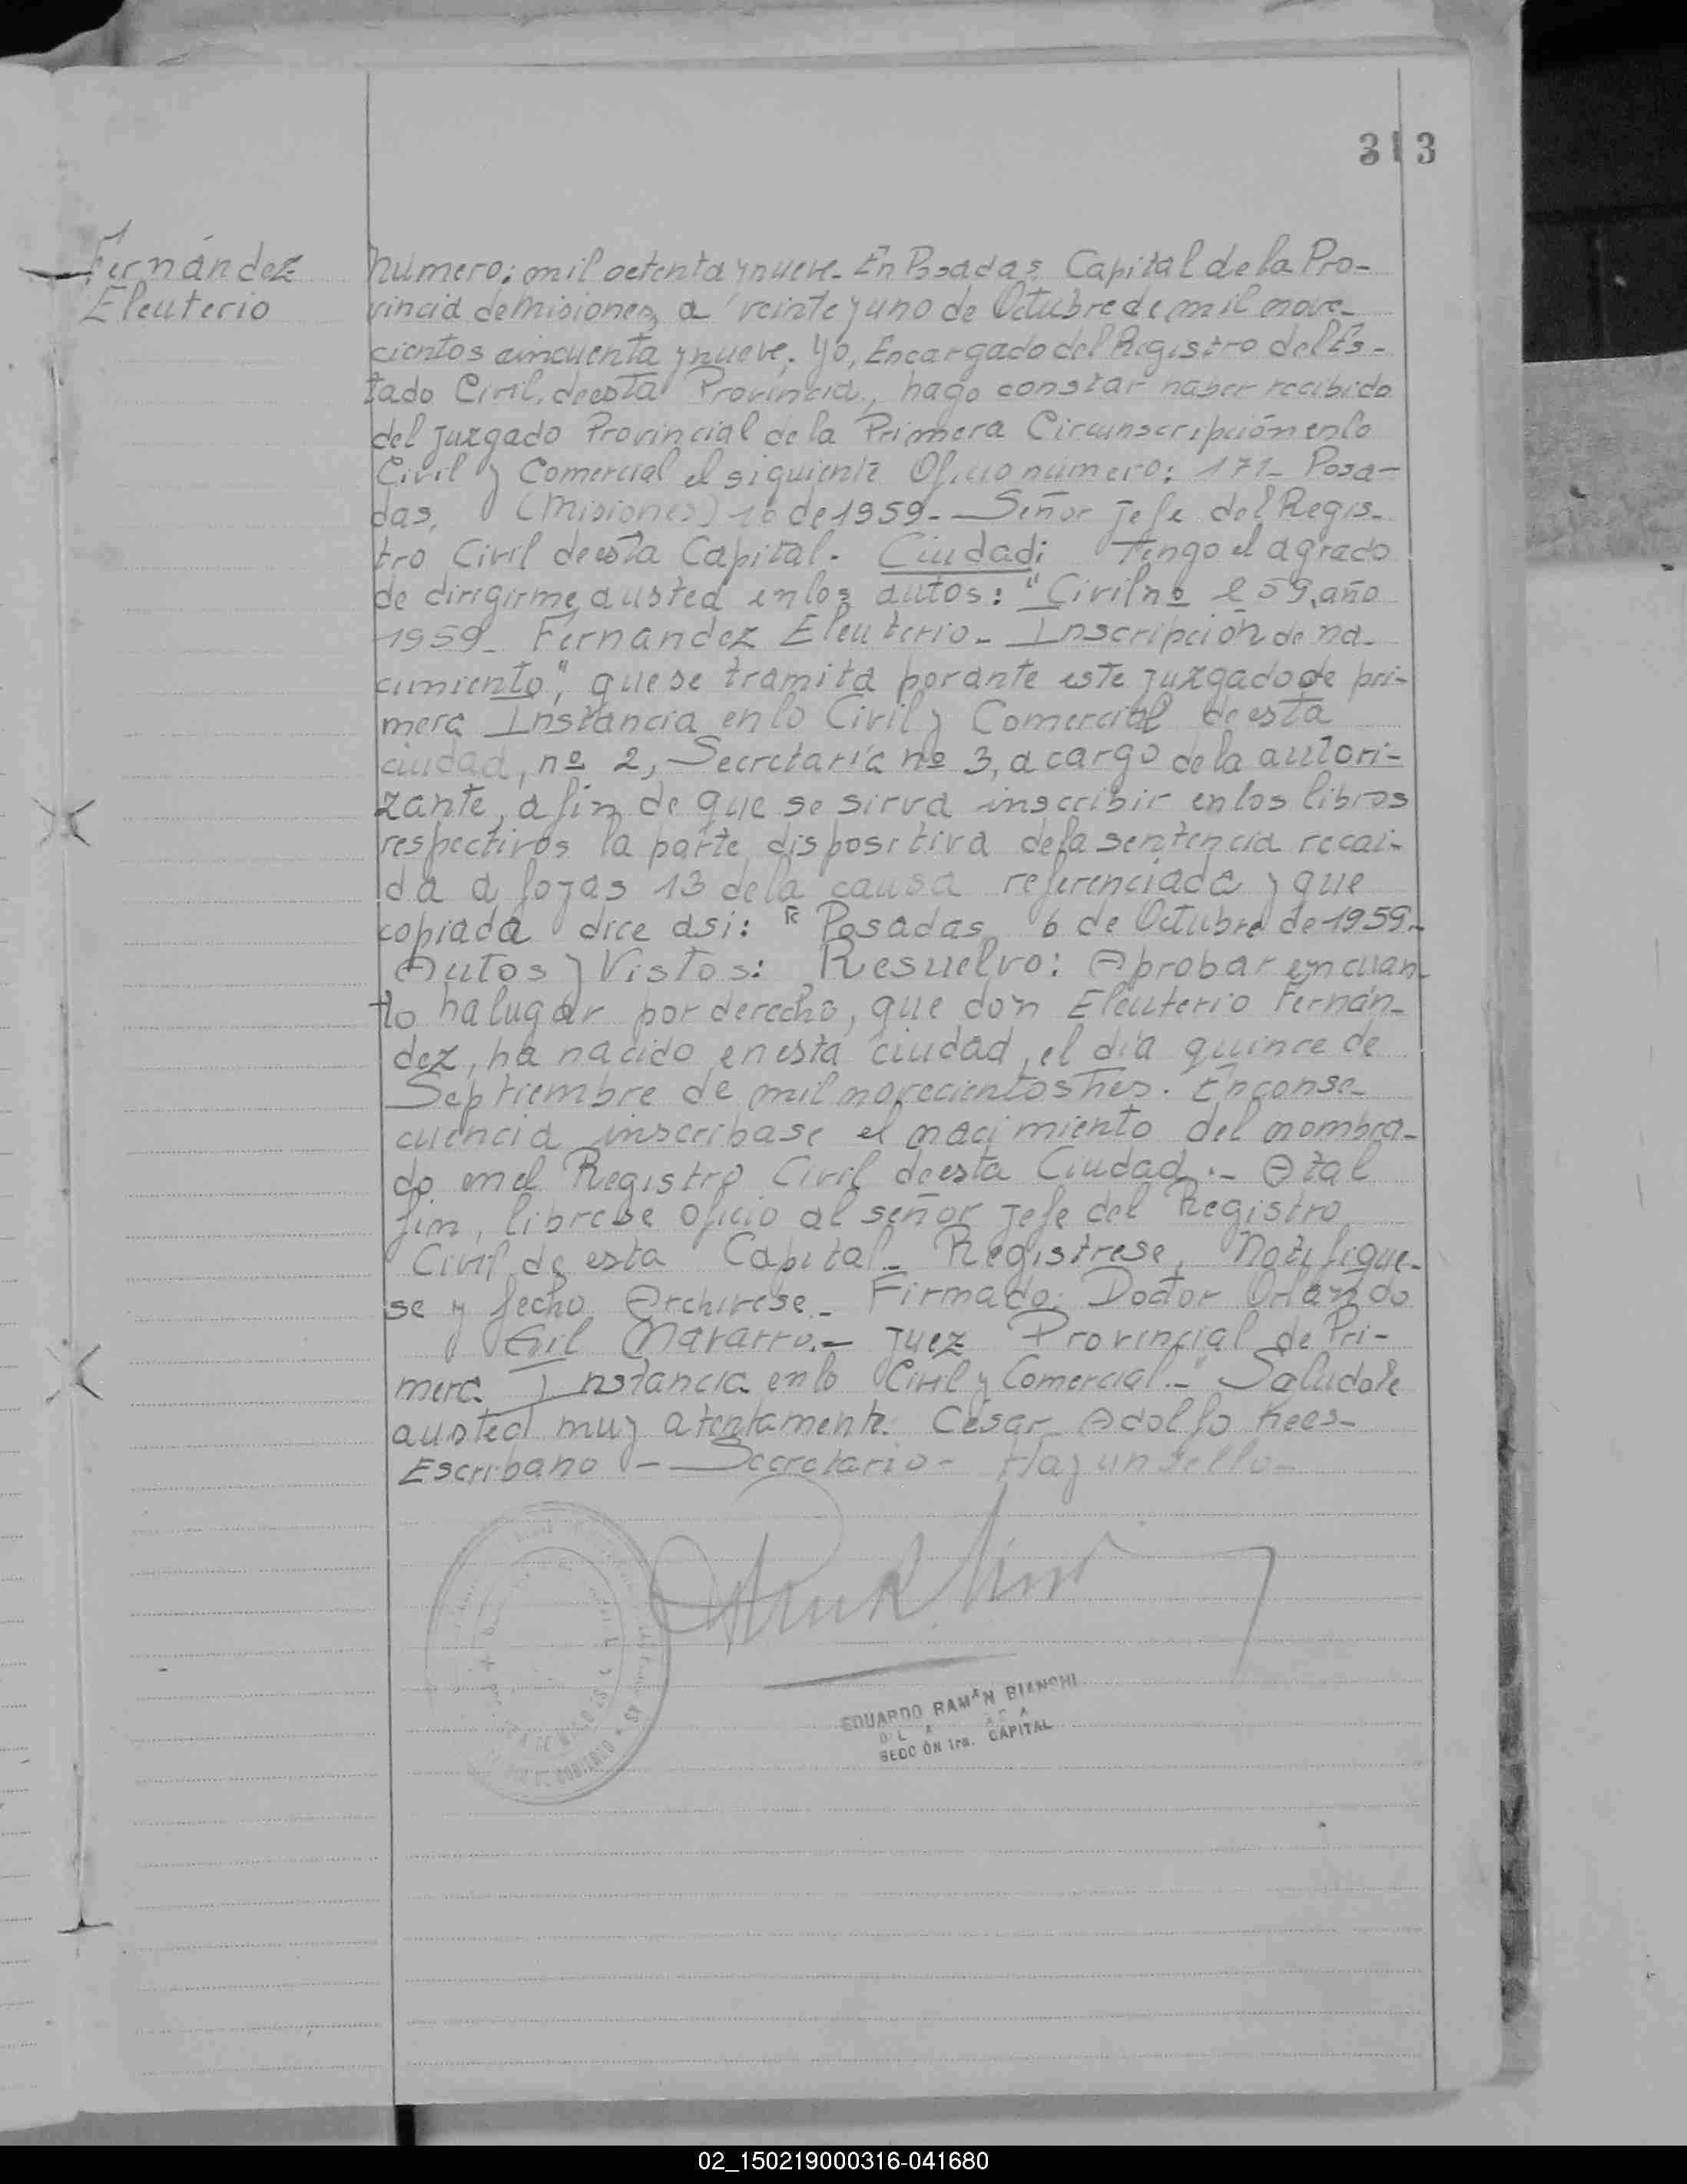 313
Fernández
Eleuterio
Número: mil octenta y nueve. En Posadas Capital de la Pro-
vincia de Misiones, a veinte y uno de Octubre de mil nove-
cientos cincuenta y nueve. Yo, Encargado del Registro del Es-
tado Civil, de esta Provincia, hago constar haber recibido
del juzgado Provincial de la Primera Circunscripción en lo
Civil y Comercial el siguiente Oficio número: 171- Posa-
das, (Misiones) 16 de 1959.- Señor Jefe del Regis-
tro Civil de esta Capital. Ciudad: Tengo el agrado
de dirigirme a usted en los autos: "Civil nº 259, año
1959- Fernandez Eleuterio- Inscripción de na-
cimiento", que se tramita por ante este juzgado de pri-
mera Instancia en lo Civil y Comercial de esta
ciudad, nº 2, Secretaría nº 3, a cargo de la autori-
zante, a fin de que se sirva inscribir en los libros
respectivos la parte dispositiva de la sentencia recai-
da a fojas 13 de la causa referenciada y que
copiada dice asi: " Posadas 6 de Octubre de 1959.-
Autos y Vistos: Resuelvo: Aprobar en cuan-
to ha lugar por derecho, que don Eleuterio Fernán-
dez, ha nacido en esta ciudad, el día quince de
Septiembre de mil novecientos tres. En conse-
cuencia inscribase el nacimiento del nombra-
do en el Registro Civil de esta Ciudad.- A tal
fin, librese oficio al señor Jefe del Registro
Civil de esta Capital- Registrese, Notifique-
se y fecho Archivese- Firmado: Doctor Orlando
Gil Navarro.- Juez Provincial de Pri-
mera Instancia en lo Civil y Comercial.-" Saludole
a usted muy atentamente. César Adolfo Rees-
Escribano - Secretario- Hay un sello-
EDUARDO RAMÓN BIANCHI
SECCIÓN 1ra. CAPITAL
02_150219000316-041680